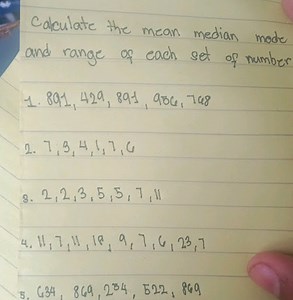 Calculate the mean median mode
and range of each set of number
1. 891, 429, 891, 936, 768
2. 7, 9, 4, 1, 7, 6
3. 2, 2, 3, 5, 5, 7, 11
4. 11, 7, 11, 18, 9, 7, 6, 23, 7
5. 634, 869, 234, 522, 869